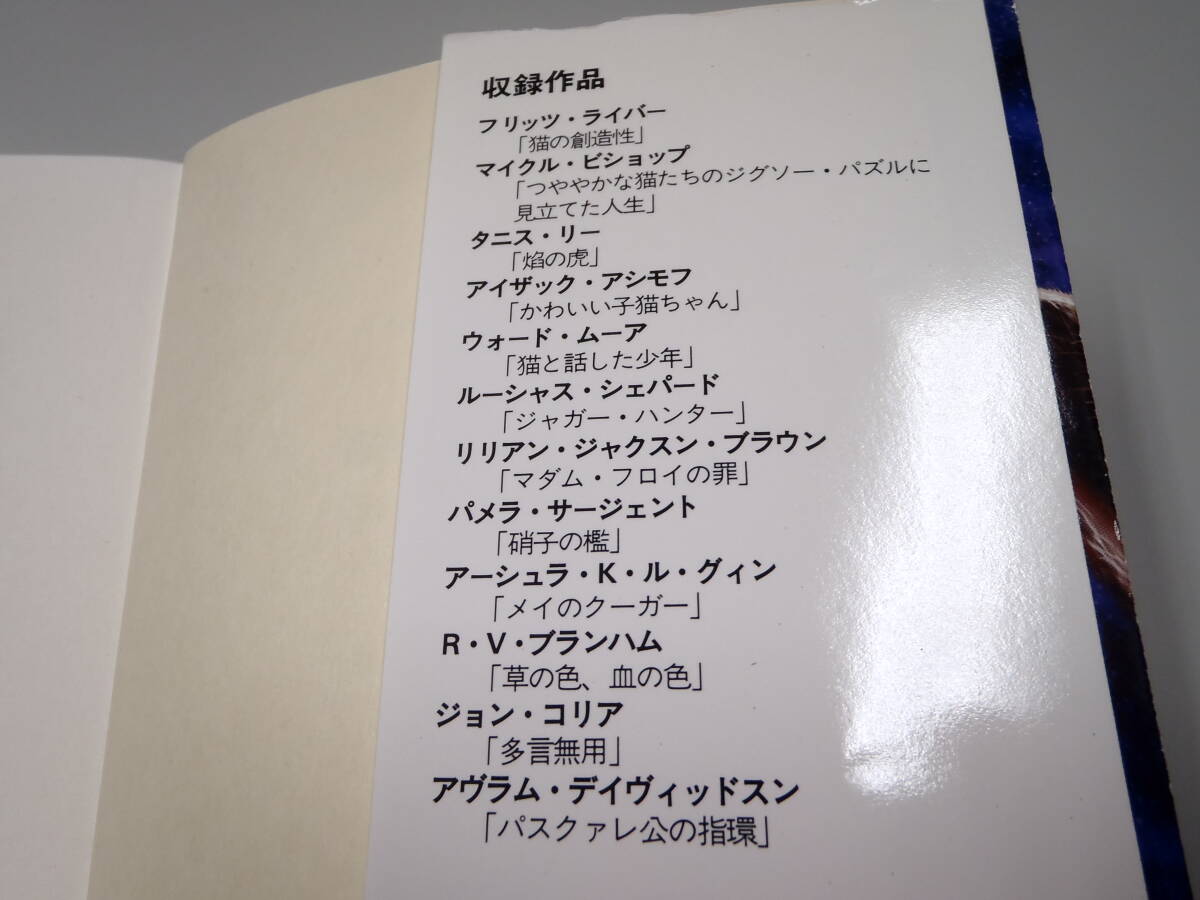 収録作品
フリッツ・ライバー
「猫の創造性」
マイクル・ビショップ
「つややかな猫たちのジグソー・パズルに
見立てた人生」
タニス・リー
「焔の虎」
アイザック・アシモフ
「かわいい子猫ちゃん」
ウォード・ムーア
「猫と話した少年」
ルーシャス・シェパード
「ジャガー・ハンター」
リリアン・ジャクスン・ブラウン
「マダム・フロイの罪」
パメラ・サージェント
「硝子の檻」
アーシュラ・K・ル・グィン
「メイのクーガー」
R・V・ブランハム
「草の色、血の色」
ジョン・コリア
「多言無用」
アヴラム・デイヴィッドスン
「パスクァレ公の指環」